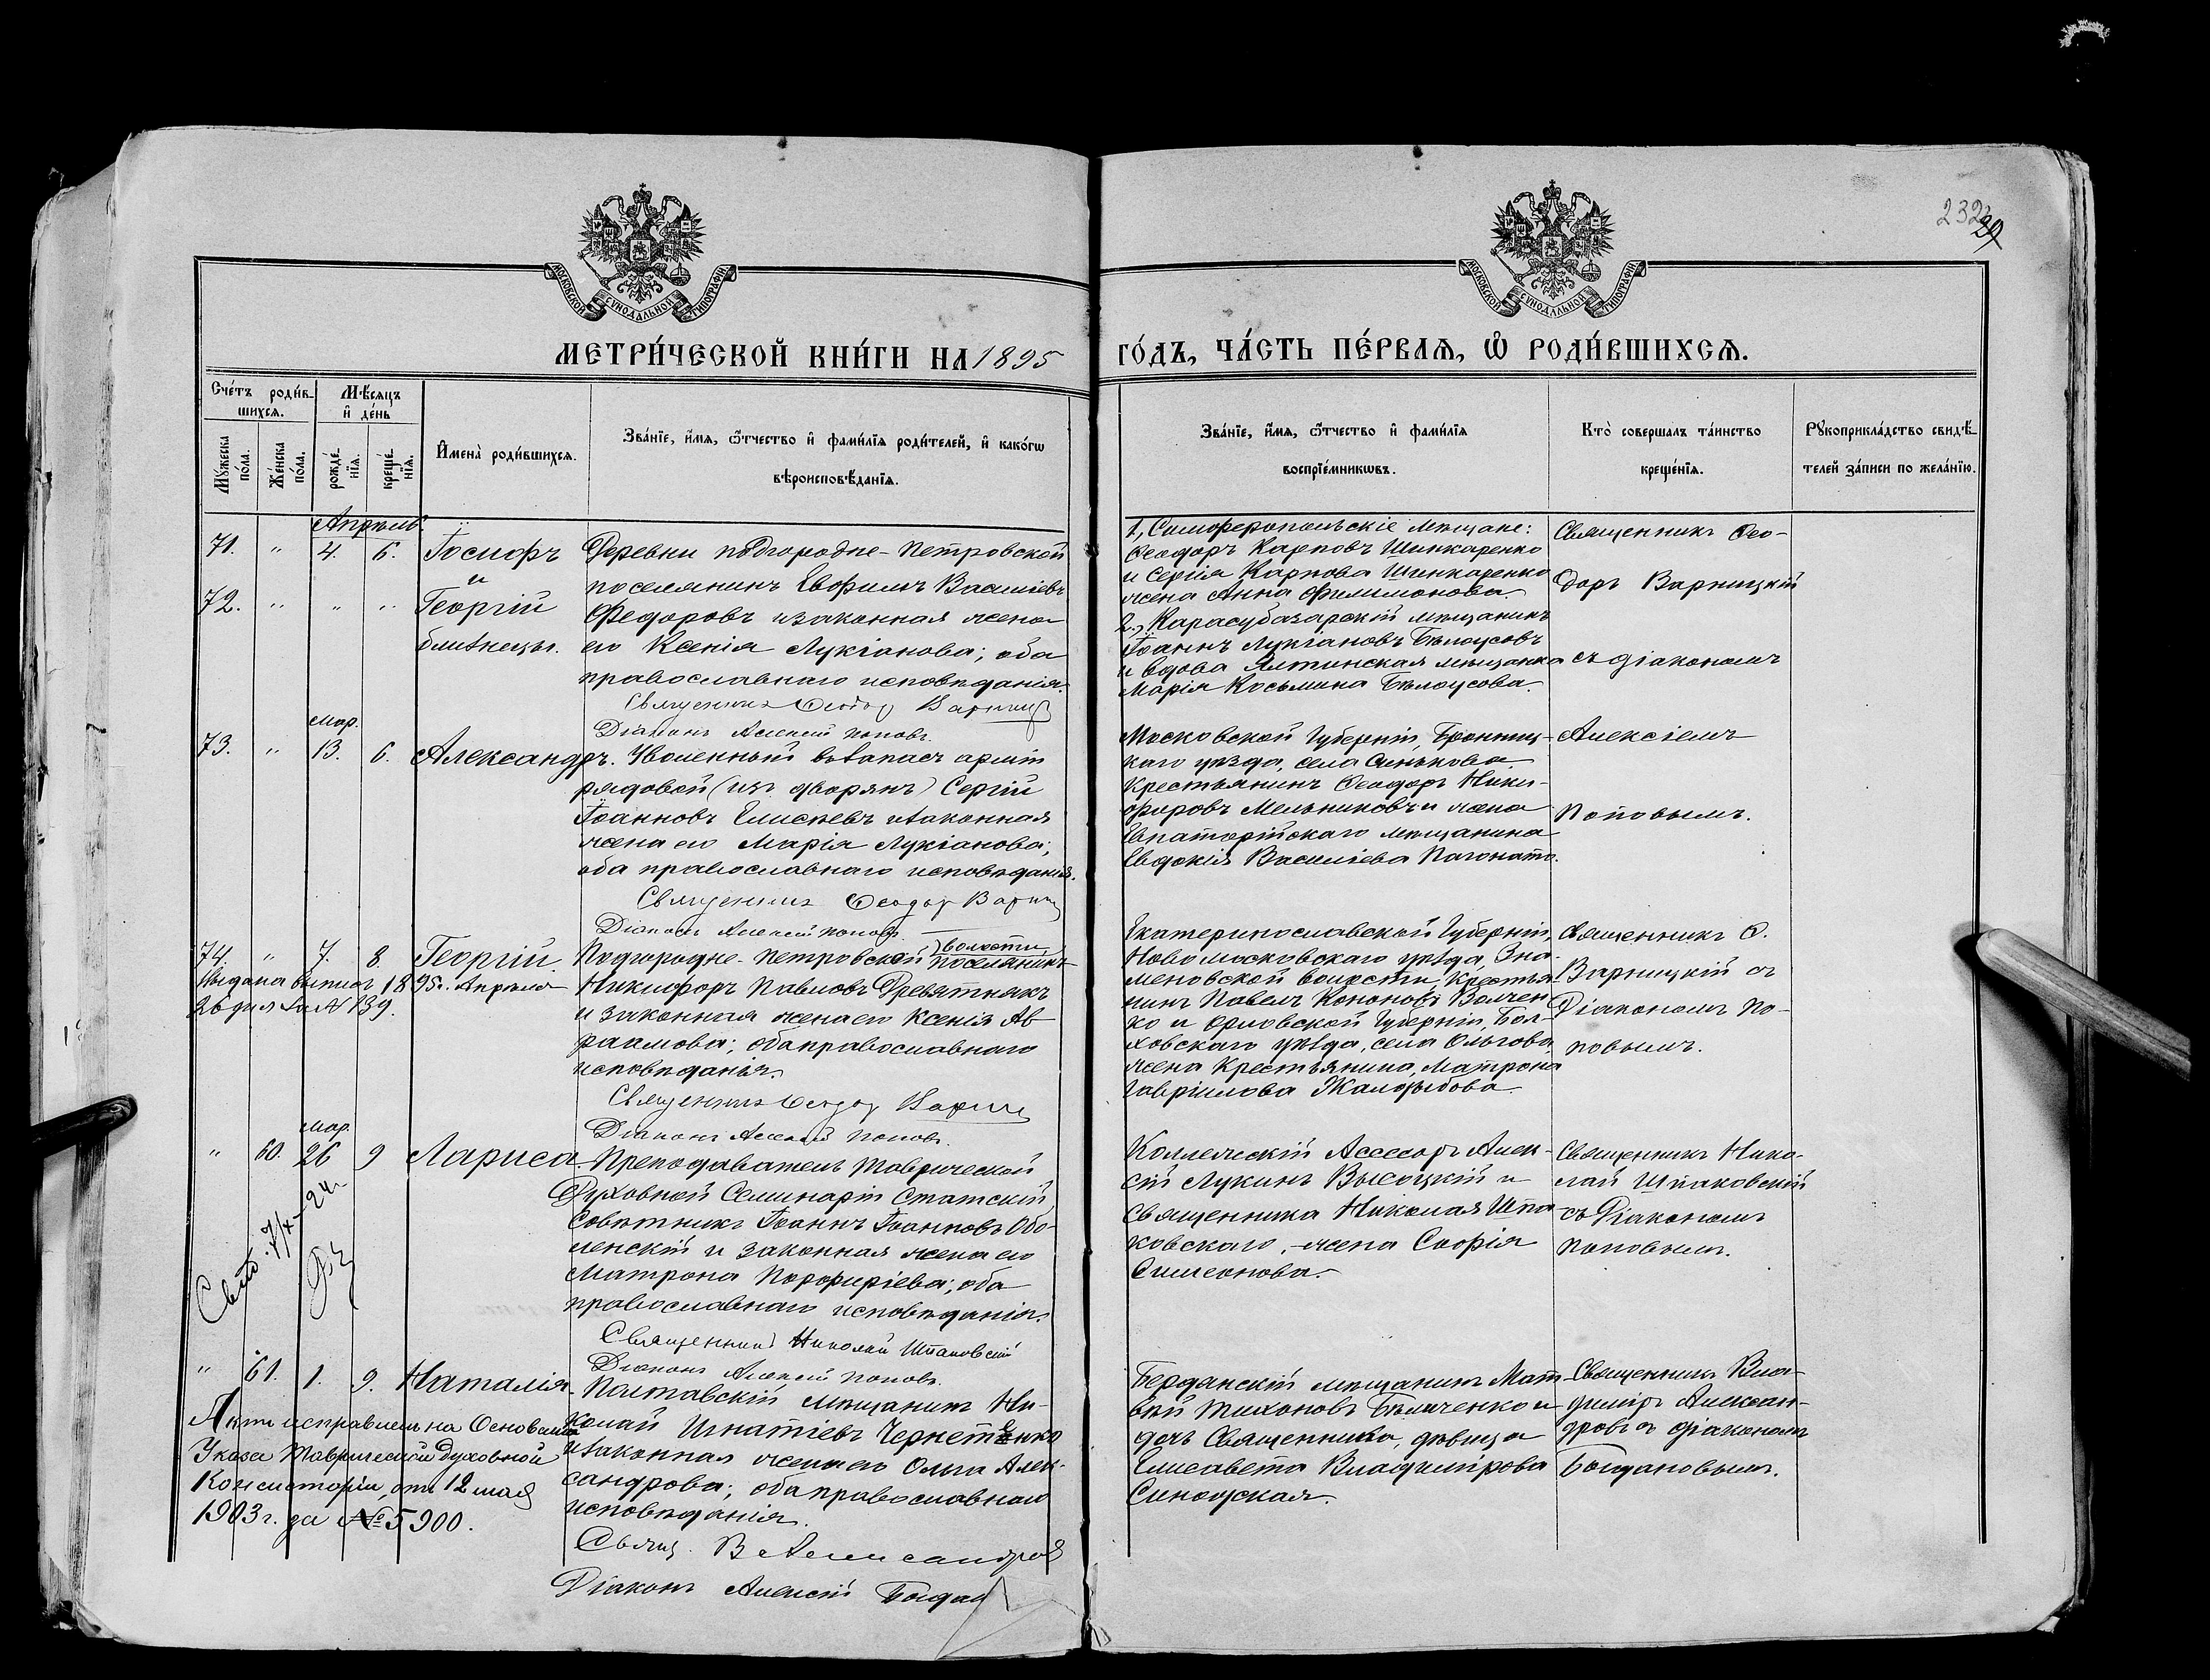 232
29
МОСКОВСКОЙ СѴНОДАЛЬНОЙ ТИПОГРАФІИ
МОСКОВСКОЙ СѴНОДАЛЬНОЙ ТИПОГРАФІИ
МЕТРИ́ЧЕСКОЙ КНИ́ГИ НА 1895
ГО́ДЪ, ЧА́СТЬ ПЕ́РВАЯ, Ѽ РОДИ́ВШИХСЯ.
Сче́тъ роди́в-
шихся.
Мѣсяцъ
и́ де́нь
Мꙋ́жеска
по́ла.
Же́нска
по́ла.
рожде́-
нїя.
креще́-
нїя.
И҆мена̀ роди́вшихся.
Зва́нїе, и҆́мя, ѻ҆́тчество и҆ фами́лїя роди́телей, и҆ како́гѡ
вѣроисповѣ́данїя.
Зва́нїе, и҆́мя, ѻ҆́тчество и҆ фами́лїя
воспрїе́мникѡвъ.
Кто̀ соверша́лъ та́инство
креще́нїя.
Рꙋкоприкла́дство свидѣ́-
телей за́писи по жела́нїю.
Апрѣль.
71. " 4. 6. Іосифъ
и
72. " " " Георгій
близнецы.
Деревни Подгородне-Петровской
поселянинъ Евфимъ Василіевъ
Федоровъ и законная жена
его Ксенія Лукіанова; оба
православнаго исповѣданія.
Священникъ Ѳеодор Варниц
Діаконъ Алексій Поповъ.
1, Симферопольскіе мѣщане:
Ѳеодоръ Карповъ Шинкаренко
и Сергія Карпова Шинкаренко
жена Анна Филимонова.
2., Карасубазарскій мѣщанинъ
Іоаннъ Лукіановъ Бѣлоусовъ
и вдова Ялтинская мѣщанка
Марія Косьмина Бѣлоусова.
Священникъ Ѳео-
доръ Варницкій
съ діакономъ
Мар.
73. " 13. 6. Александръ.
Уволенный въ запасъ арміи
рядовой (изъ дворянъ) Сергій
Іоанновъ Елисѣевъ и законная
жена его Марія Лукіанова;
оба православнаго исповѣданія.
Священникъ Ѳеодор Варниц
Діаконъ Алексій Поповъ.
Московской Губерніи, Бронниц-
каго уѣзда, села Синькова
Крестьянинъ Ѳеодоръ Ники-
форовъ Мельниковъ и жена
Евпаторійскаго мѣщанина
Евдокія Василіева Пагонато.
Алексіемъ
Поповымъ.
74. " 7. 8. Георгій.
Выдана выпись 1895 г. Апрѣля
26 дня за № 139.
Подгородне-Петровской волости
поселянинъ
Никифоръ Павловъ Древятнякъ
и законная жена его Ксенія Ав-
раамова; оба православнаго
исповѣданія.
Священникъ Ѳеодор Варниц
Діаконъ Алексій Поповъ.
Екатеринославской Губерніи,
Новомосковскаго уѣзда, Зна-
меновской волости, Крестья-
нинъ Павелъ Кононовъ Волчен-
ко и Орловской Губерніи, Бол-
ховскаго уѣзда, села Ольгова
жена Крестьянина, Матрона
Гавріилова Жалорыбова.
Священникъ Ѳ.
Варницкій съ
Діакономъ По-
повымъ.
Мар.
" 60. 26 9 Лариса.
Преподаватель Таврической
Духовной Семинаріи Статскій
Совѣтникъ Іоаннъ Іоанновъ Обо-
ленскій и законная жена его
Матрона Порфиріева; оба
православнаго исповѣданія.
Священникъ Николай Шпаковскій
Діаконъ Алексій Поповъ.
Коллежскій Ассесоръ Алек-
сій Лукинъ Высоцкій и
священника Николая Шпа-
ковскаго, жена Софія
Симеонова.
Священникъ Нико-
лай Шпаковскій
съ Діакономъ
Поповымъ.
" 61. 1. 9. Наталія.
Актъ исправленъ на Основаніи
Указа Таврической Духовной
Консисторіи, отъ 12 мая
1903 г. за № 5900.
Полтавскій мѣщанинъ Ни-
колай Игнатіевъ Чернетенко
и законная жена его Ольга Алек-
сандрова; оба православнаго
исповѣданія.
Свящ. В Александров
Діаконъ Алексій Богдан
Бердянскій мѣщанинъ Мат-
ѳей Тихоновъ Бѣличенко и
дочь Священника, дѣвица
Елисавета Владимірова
Синодская.
Священникъ Вла-
диміръ Алексан-
дровъ съ діакономъ
Богдановымъ.